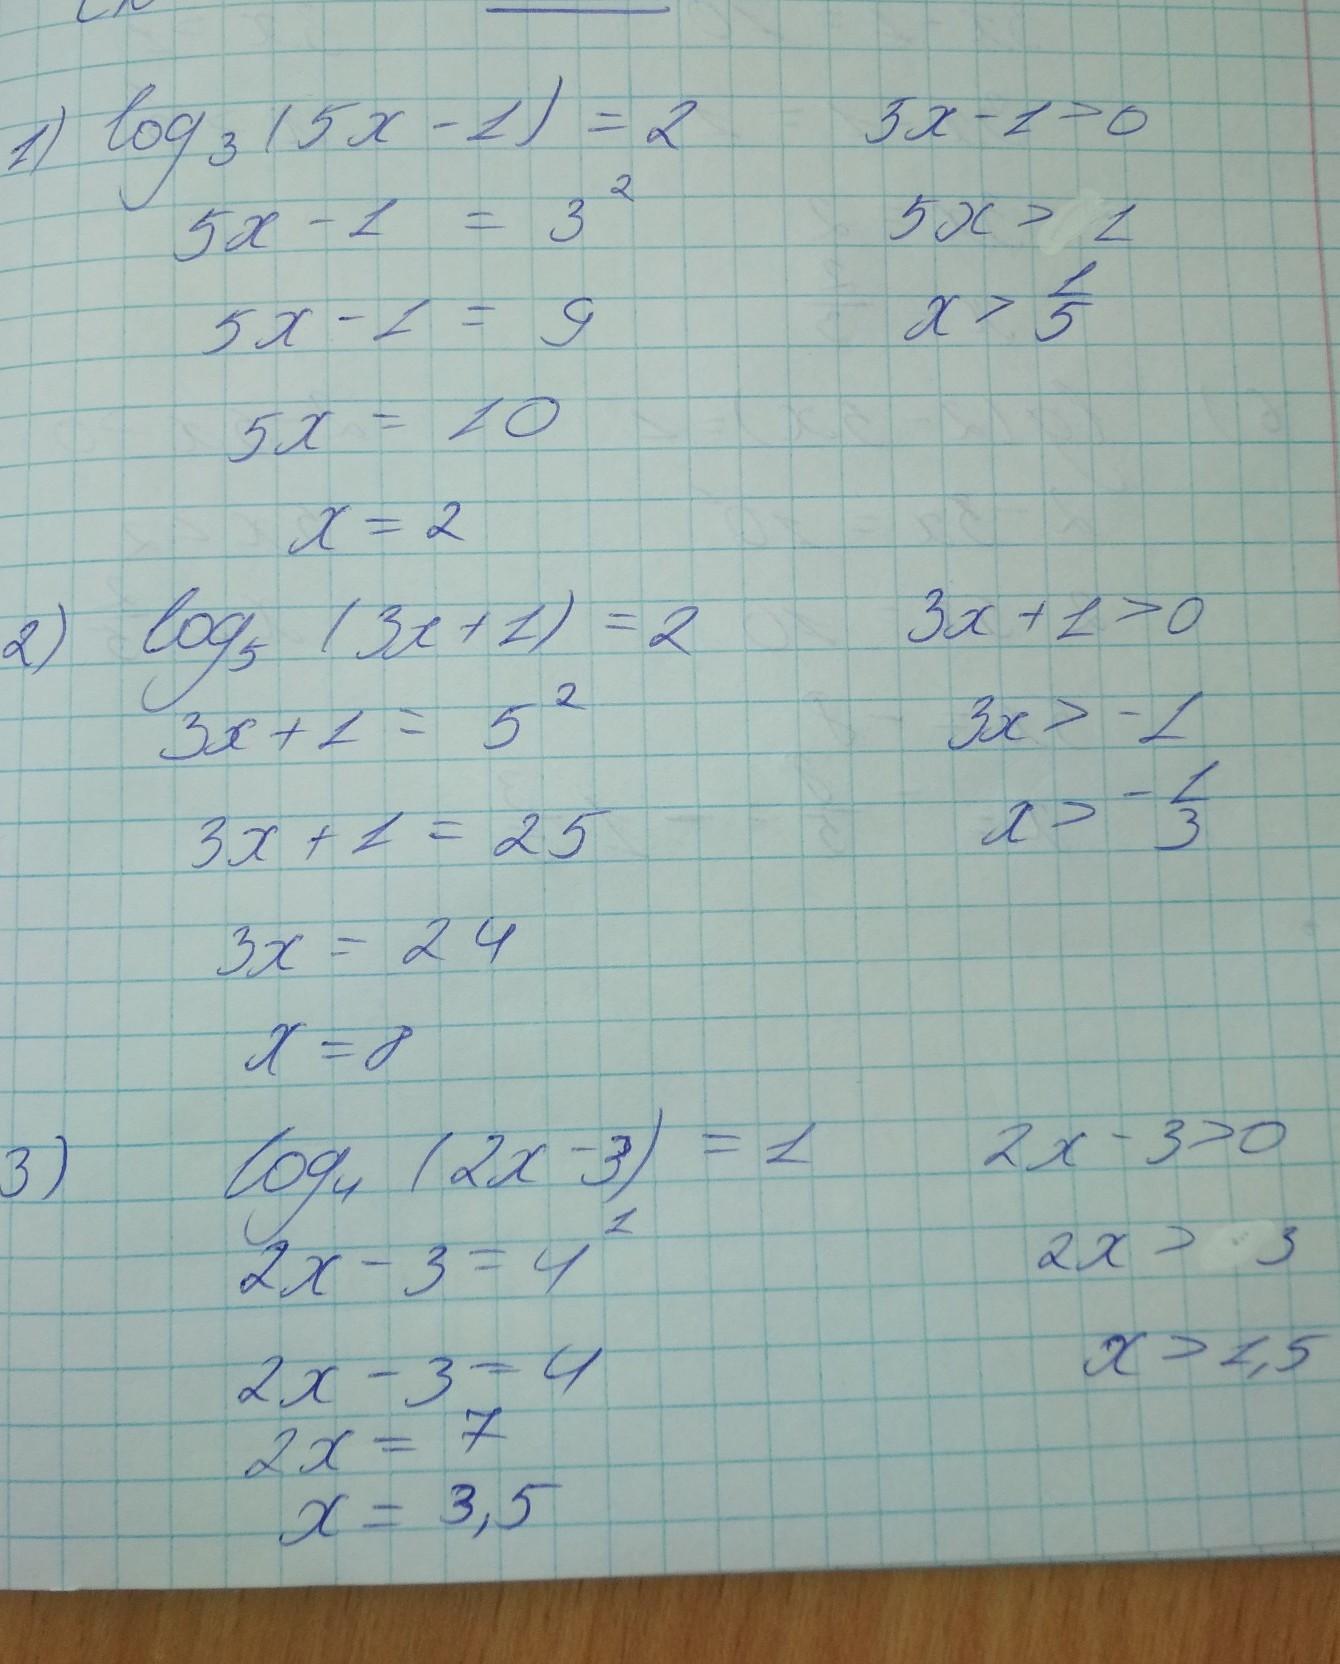 1) log₃(5x-1) = 2 5x-1>0
5x-1 = 3² 5x > 1
5x-1 = 9 x > 1/5
5x = 10
x = 2
2) log₅ (3x+1) = 2 3x+1>0
3x+1 = 5² 3x > -1
3x+1 = 25 x > -1/3
3x = 24
x = 8
3) log₄ (2x-3) = 1 2x-3>0
2x-3 = 4¹ 2x > 3
2x-3 = 4 x > 1,5
2x = 7
x = 3,5